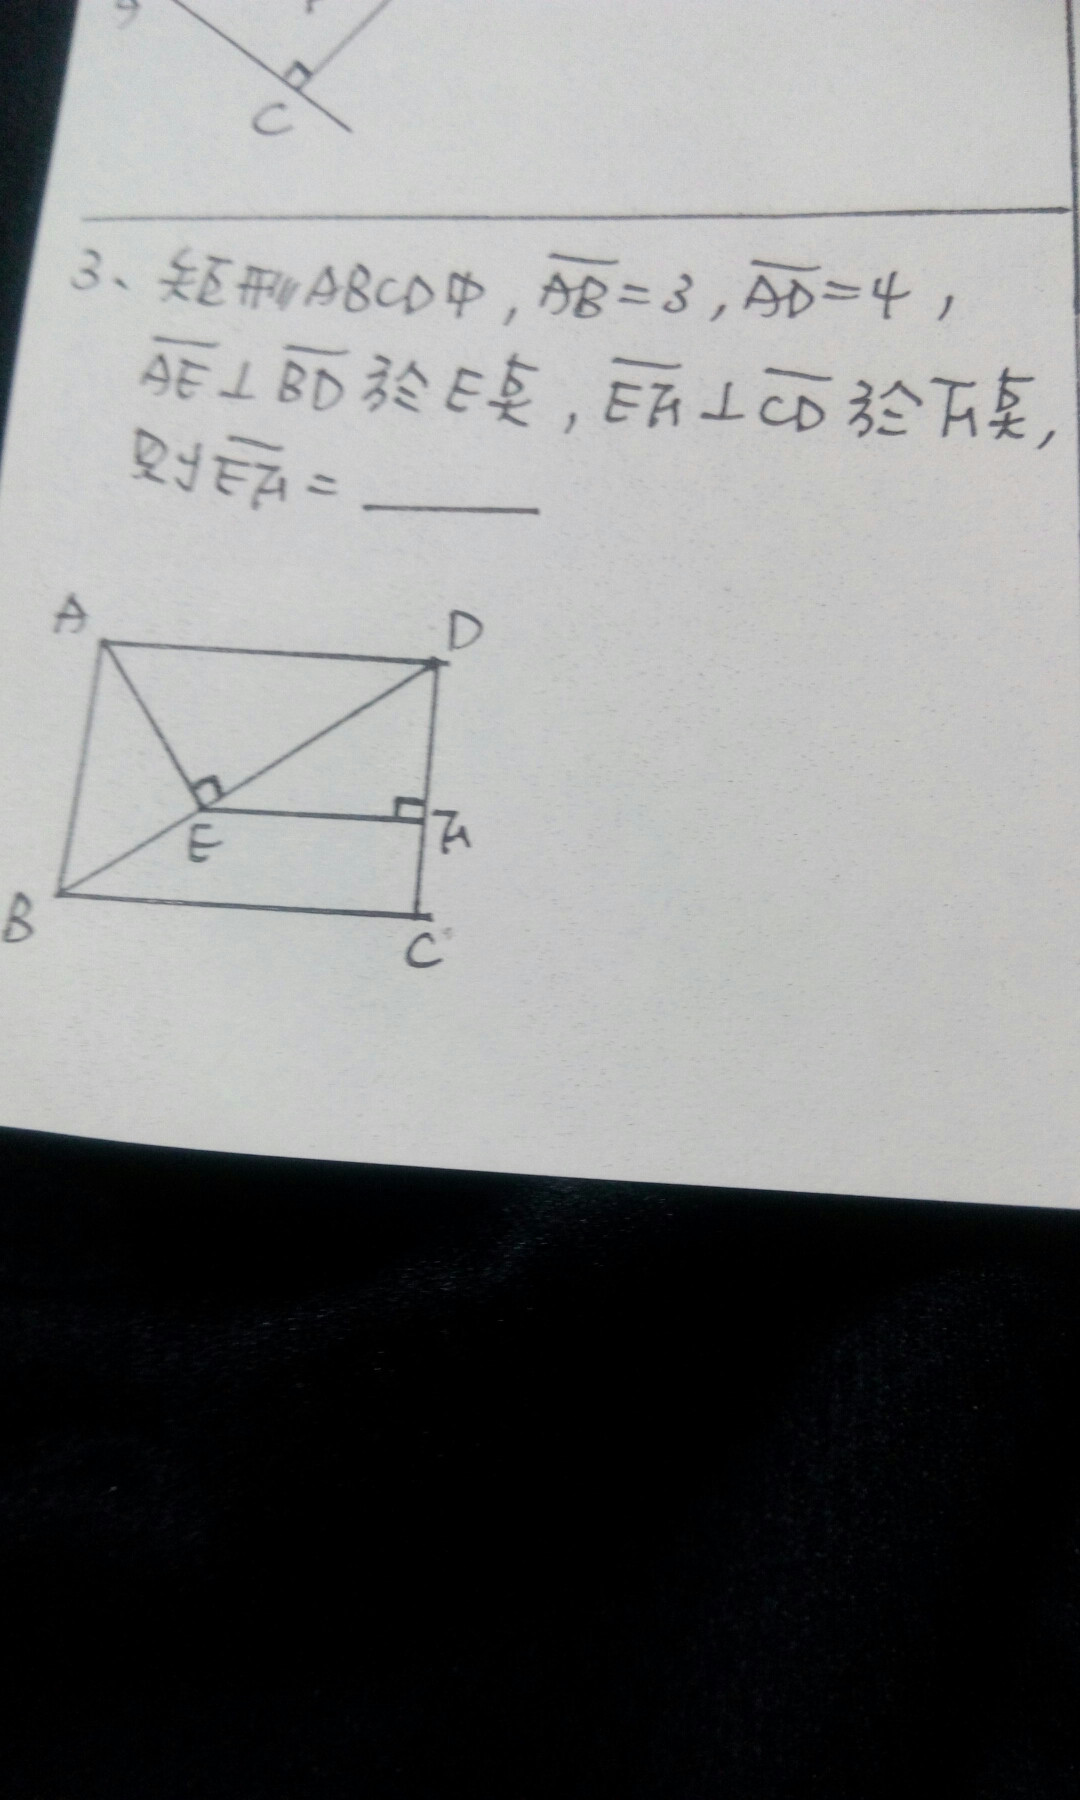 C
3、矩形ABCD中，AB=3，AD=4，
AE⊥BD於E點，EF⊥CD於F點，
則EF=
A
D
E
F
B
C